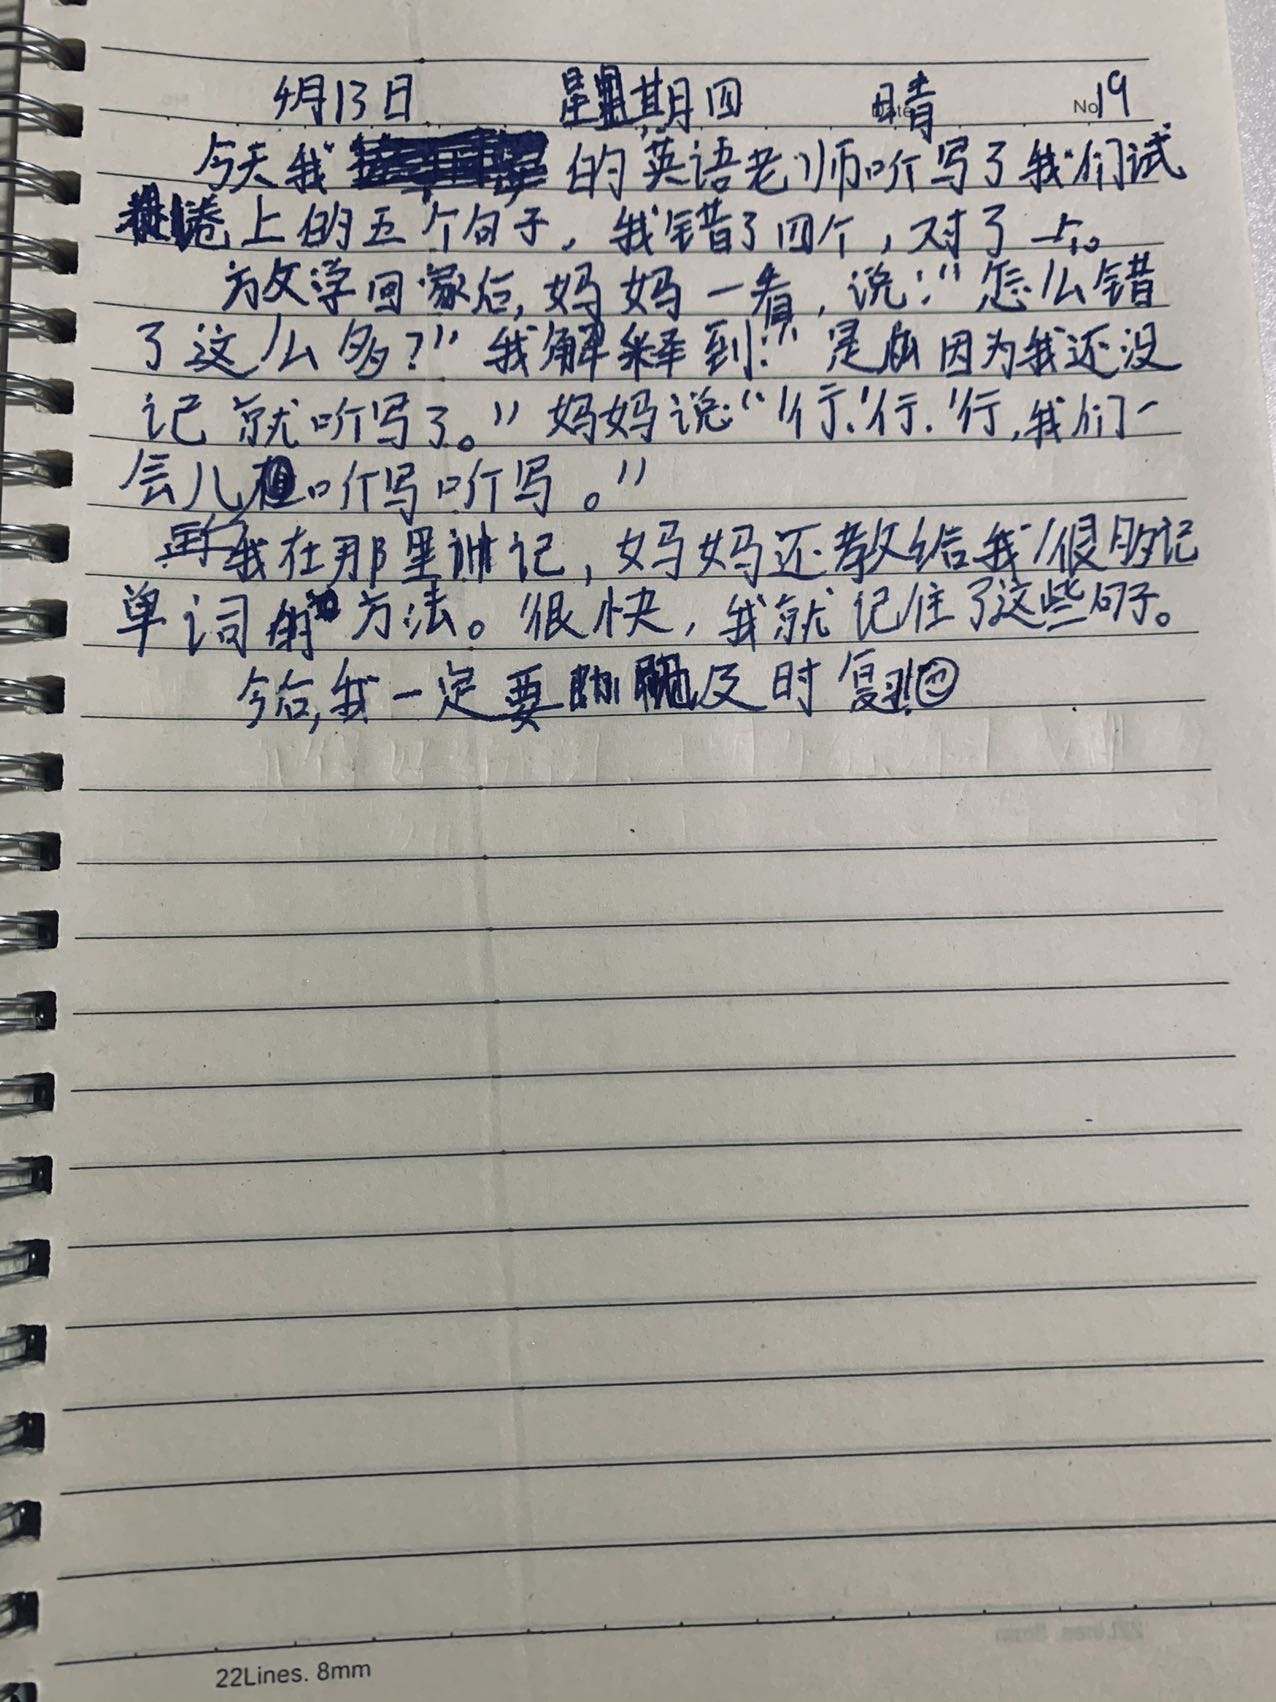 4月13日 星期四 晴 No 19
今天我的英语老师听写了我们试
卷上的五个句子，我错了四个，对了一个。
放学回家后，妈妈一看，说："怎么错
了这么多？"我解释到："是因为我还没
记就听写了。"妈妈说："行，行，行，我们一
会儿听写听写。"
我在那里记，妈妈还教给我很多记
单词的方法。很快，我就记住了这些句子。
今后，我一定要及时复习!
22Lines. 8mm